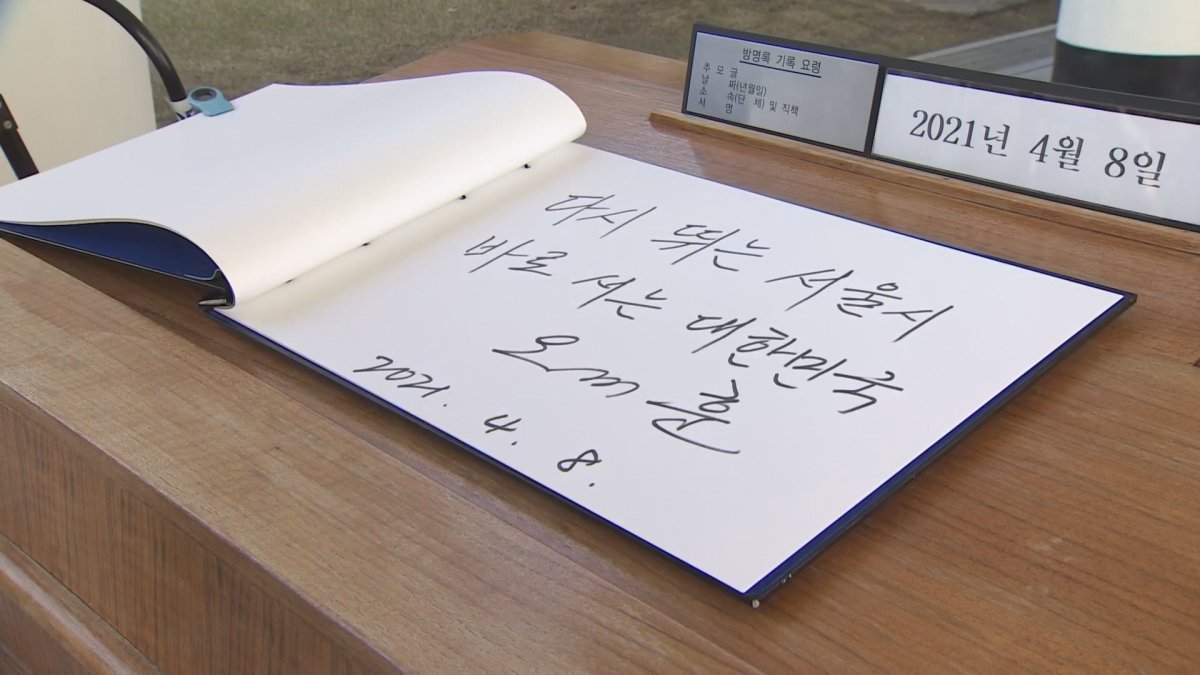 방명록 기록 요령
추 모 글
날 짜(년월일)
소 속(단 체) 및 직책
서 명
2021년 4월 8일
다시 뛰는 서울시
바로 서는 대한민국
오세훈
2021. 4. 8.